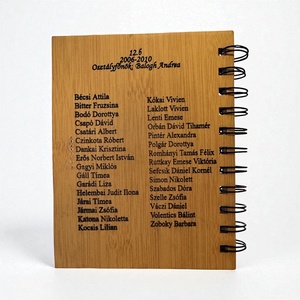 12.b
2006-2010
Osztályfőnök: Balogh Andrea
Bécsi Attila
Bitter Fruzsina
Bodó Dorottya
Csapó Dávid
Csatári Albert
Czinkota Róbert
Dankai Krisztina
Erős Norbert István
Gagyi Miklós
Gáll Tímea
Garádi Liza
Helembai Judit Ilona
Járai Tímea
Jármai Zsófia
Katona Nikoletta
Kocsis Lilian
Kókai Vivien
Laklott Vivien
Lenti Emese
Orbán Dávid Tihamér
Pintér Alexandra
Polgár Dorottya
Romhányi Tamás Félix
Ruttkay Emese Viktória
Sefcsik Dániel Kornél
Simon Nikolett
Szabados Dóra
Szelle Zsófia
Váczi Dániel
Volentics Bálint
Zoboky Barbara